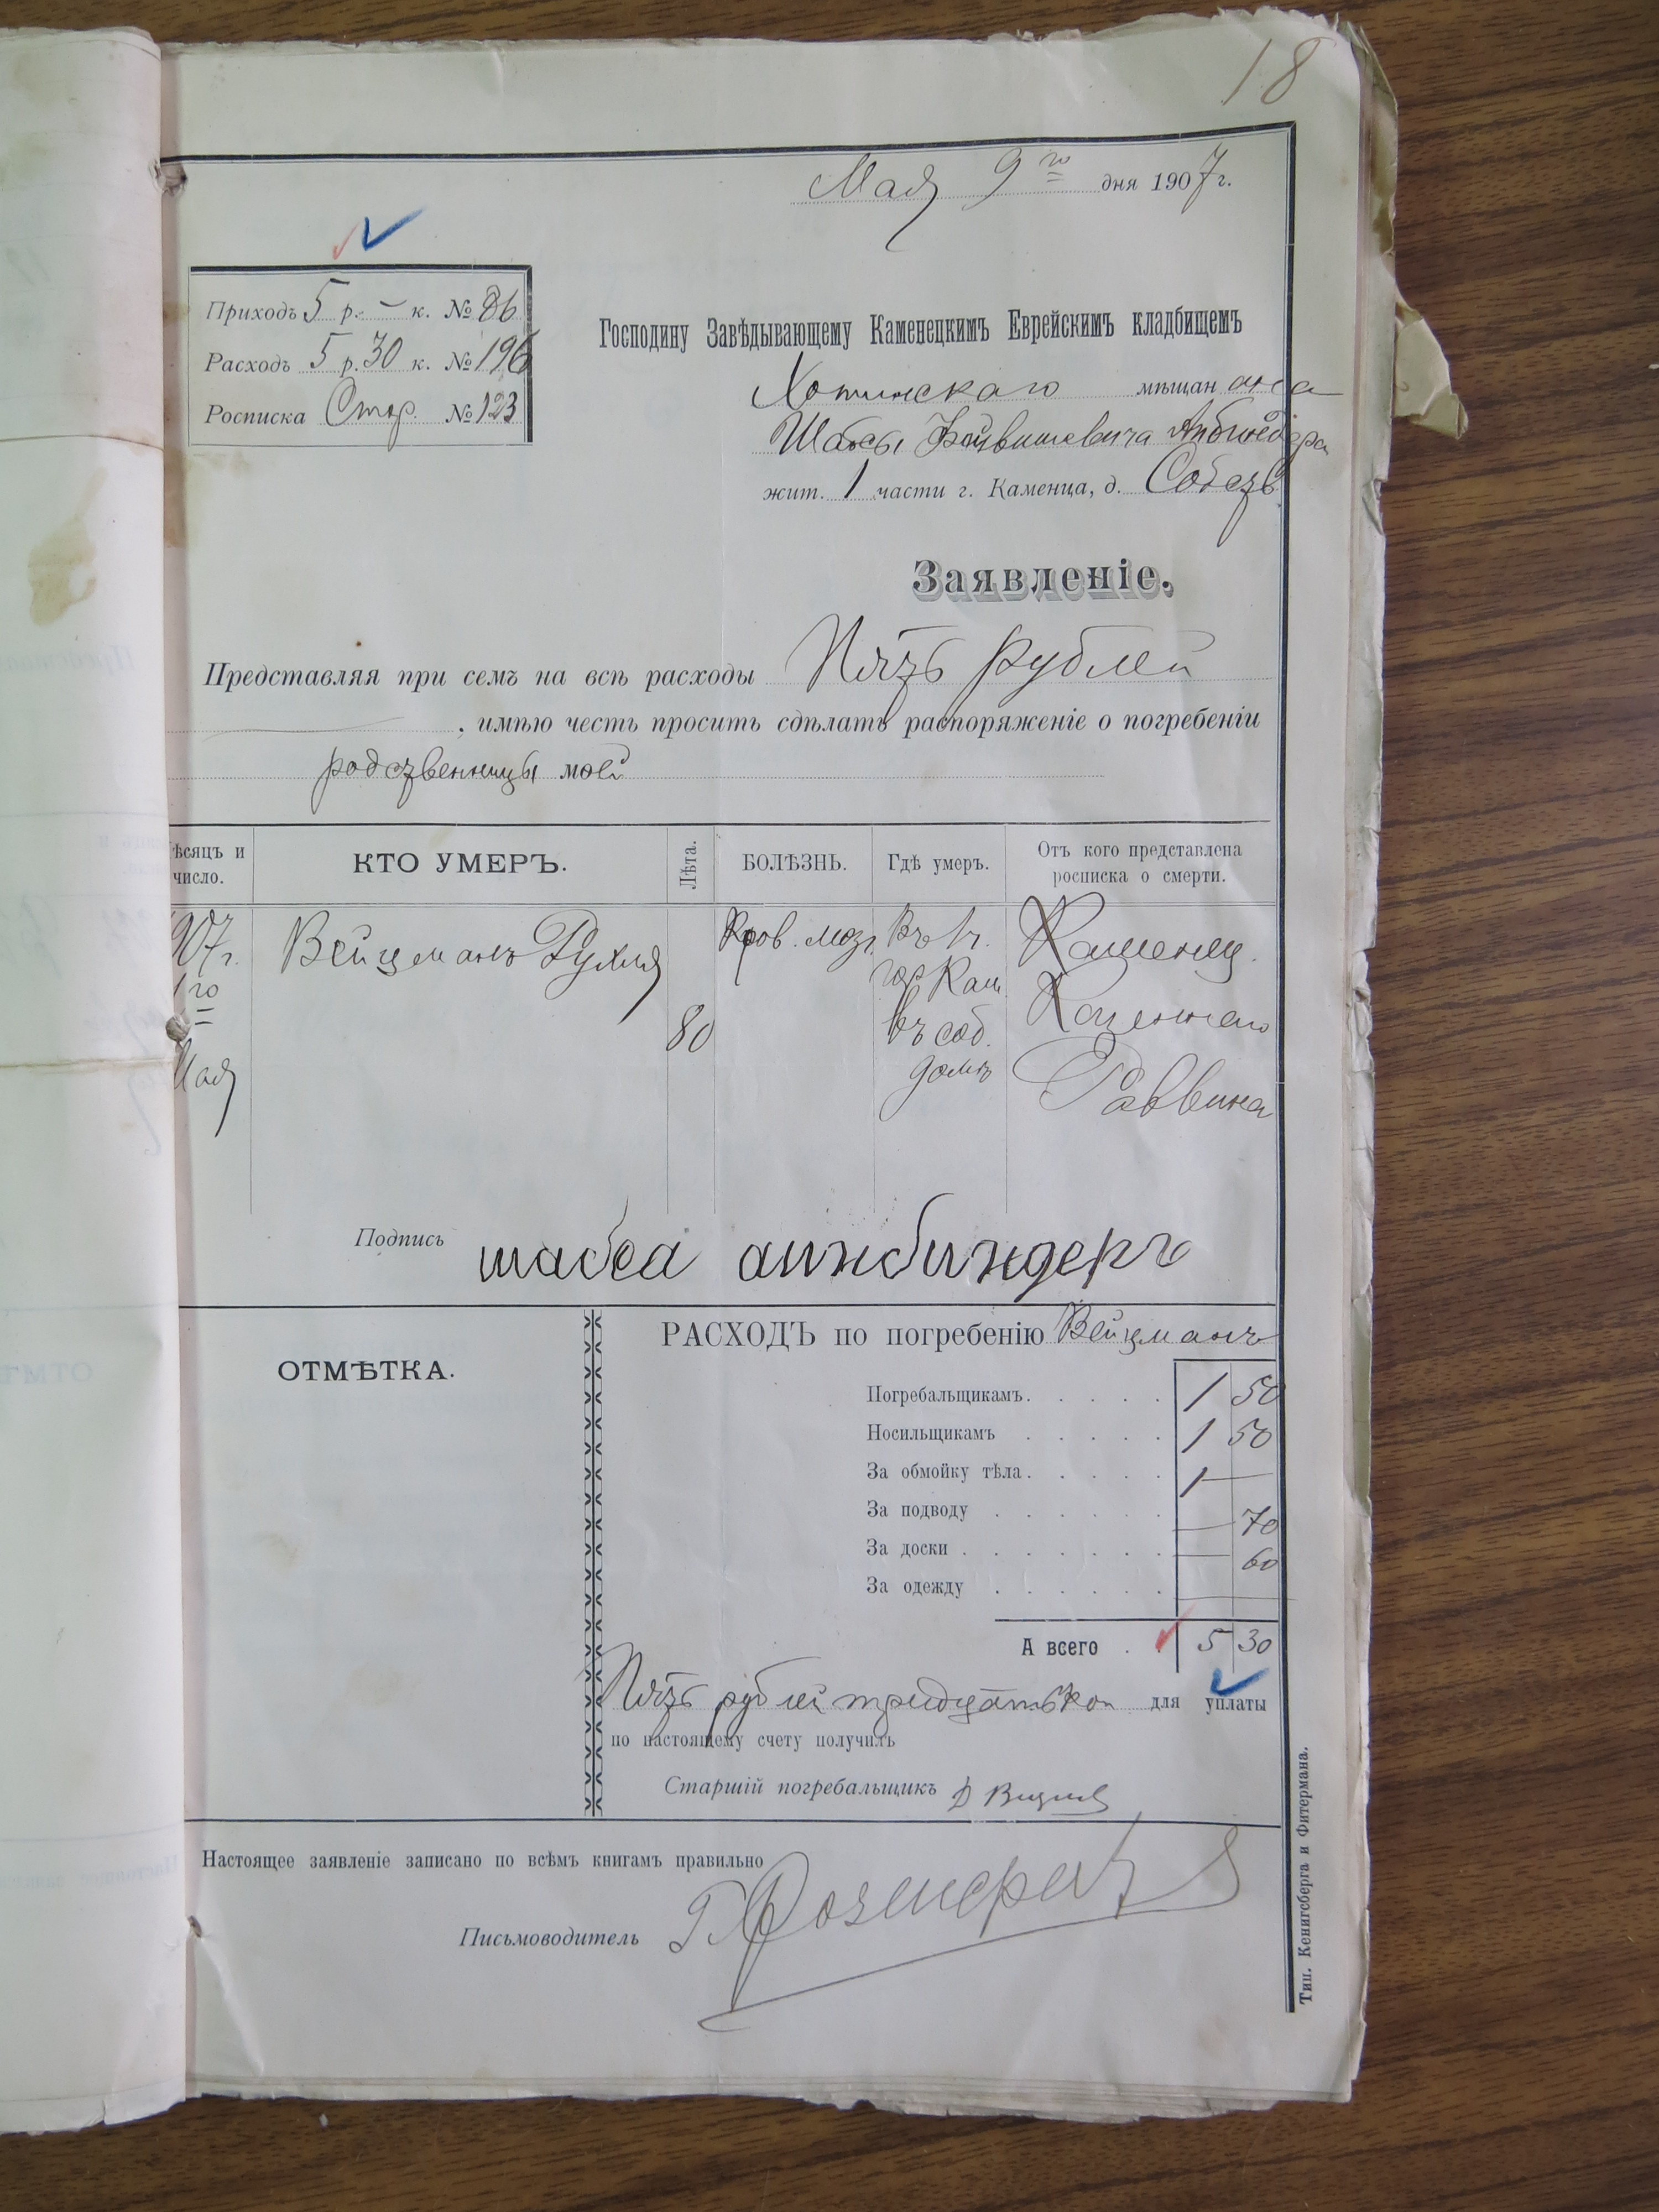 18
Мая 9го дня 1907 г.
Приходъ 5 р. – к. № 86
Расходъ 5 р. 30 к. № 196
Росписка Стор. № 123
Господину Завѣдывающему Каменецкимъ Еврейскимъ кладбищемъ
Хотинскаго мѣщанина
Шабсы
жит. 1 части г. Каменца, д. Собств.
Заявленіе.
Представляя при семъ на всѣ расходы Пять рублей
, имѣю честь просить сдѣлать распоряженіе о погребеніи
родственницы моей
ѣсяцъ и число.
КТО УМЕРЪ.
Лѣта.
БОЛѢЗНЬ.
Гдѣ умеръ.
Отъ кого представлена росписка о смерти.
907 г.
1го
Мая
Вейцманъ Рухля
80
Кров. мозг.
Въ 1 ч.
гор Кам.
въ соб.
домѣ
Каменец.
Казеннаго
Раввина
Подпись шабса аинбиндеръ
ОТМѢТКА.
РАСХОДЪ по погребенію Вейцманъ
Погребальщикамъ. 1 50
Носильщикамъ 1 50
За обмойку тѣла. 1 —
За подводу — 70
За доски — 60
За одежду
А всего 5 30
Пять рублей тридцать коп для уплаты
по настоящему счету получилъ
Старшій погребальщикъ
Настоящее заявленіе записано по всѣмъ книгамъ правильно
Письмоводитель
Тип. Кенигсберга и Фитермана.